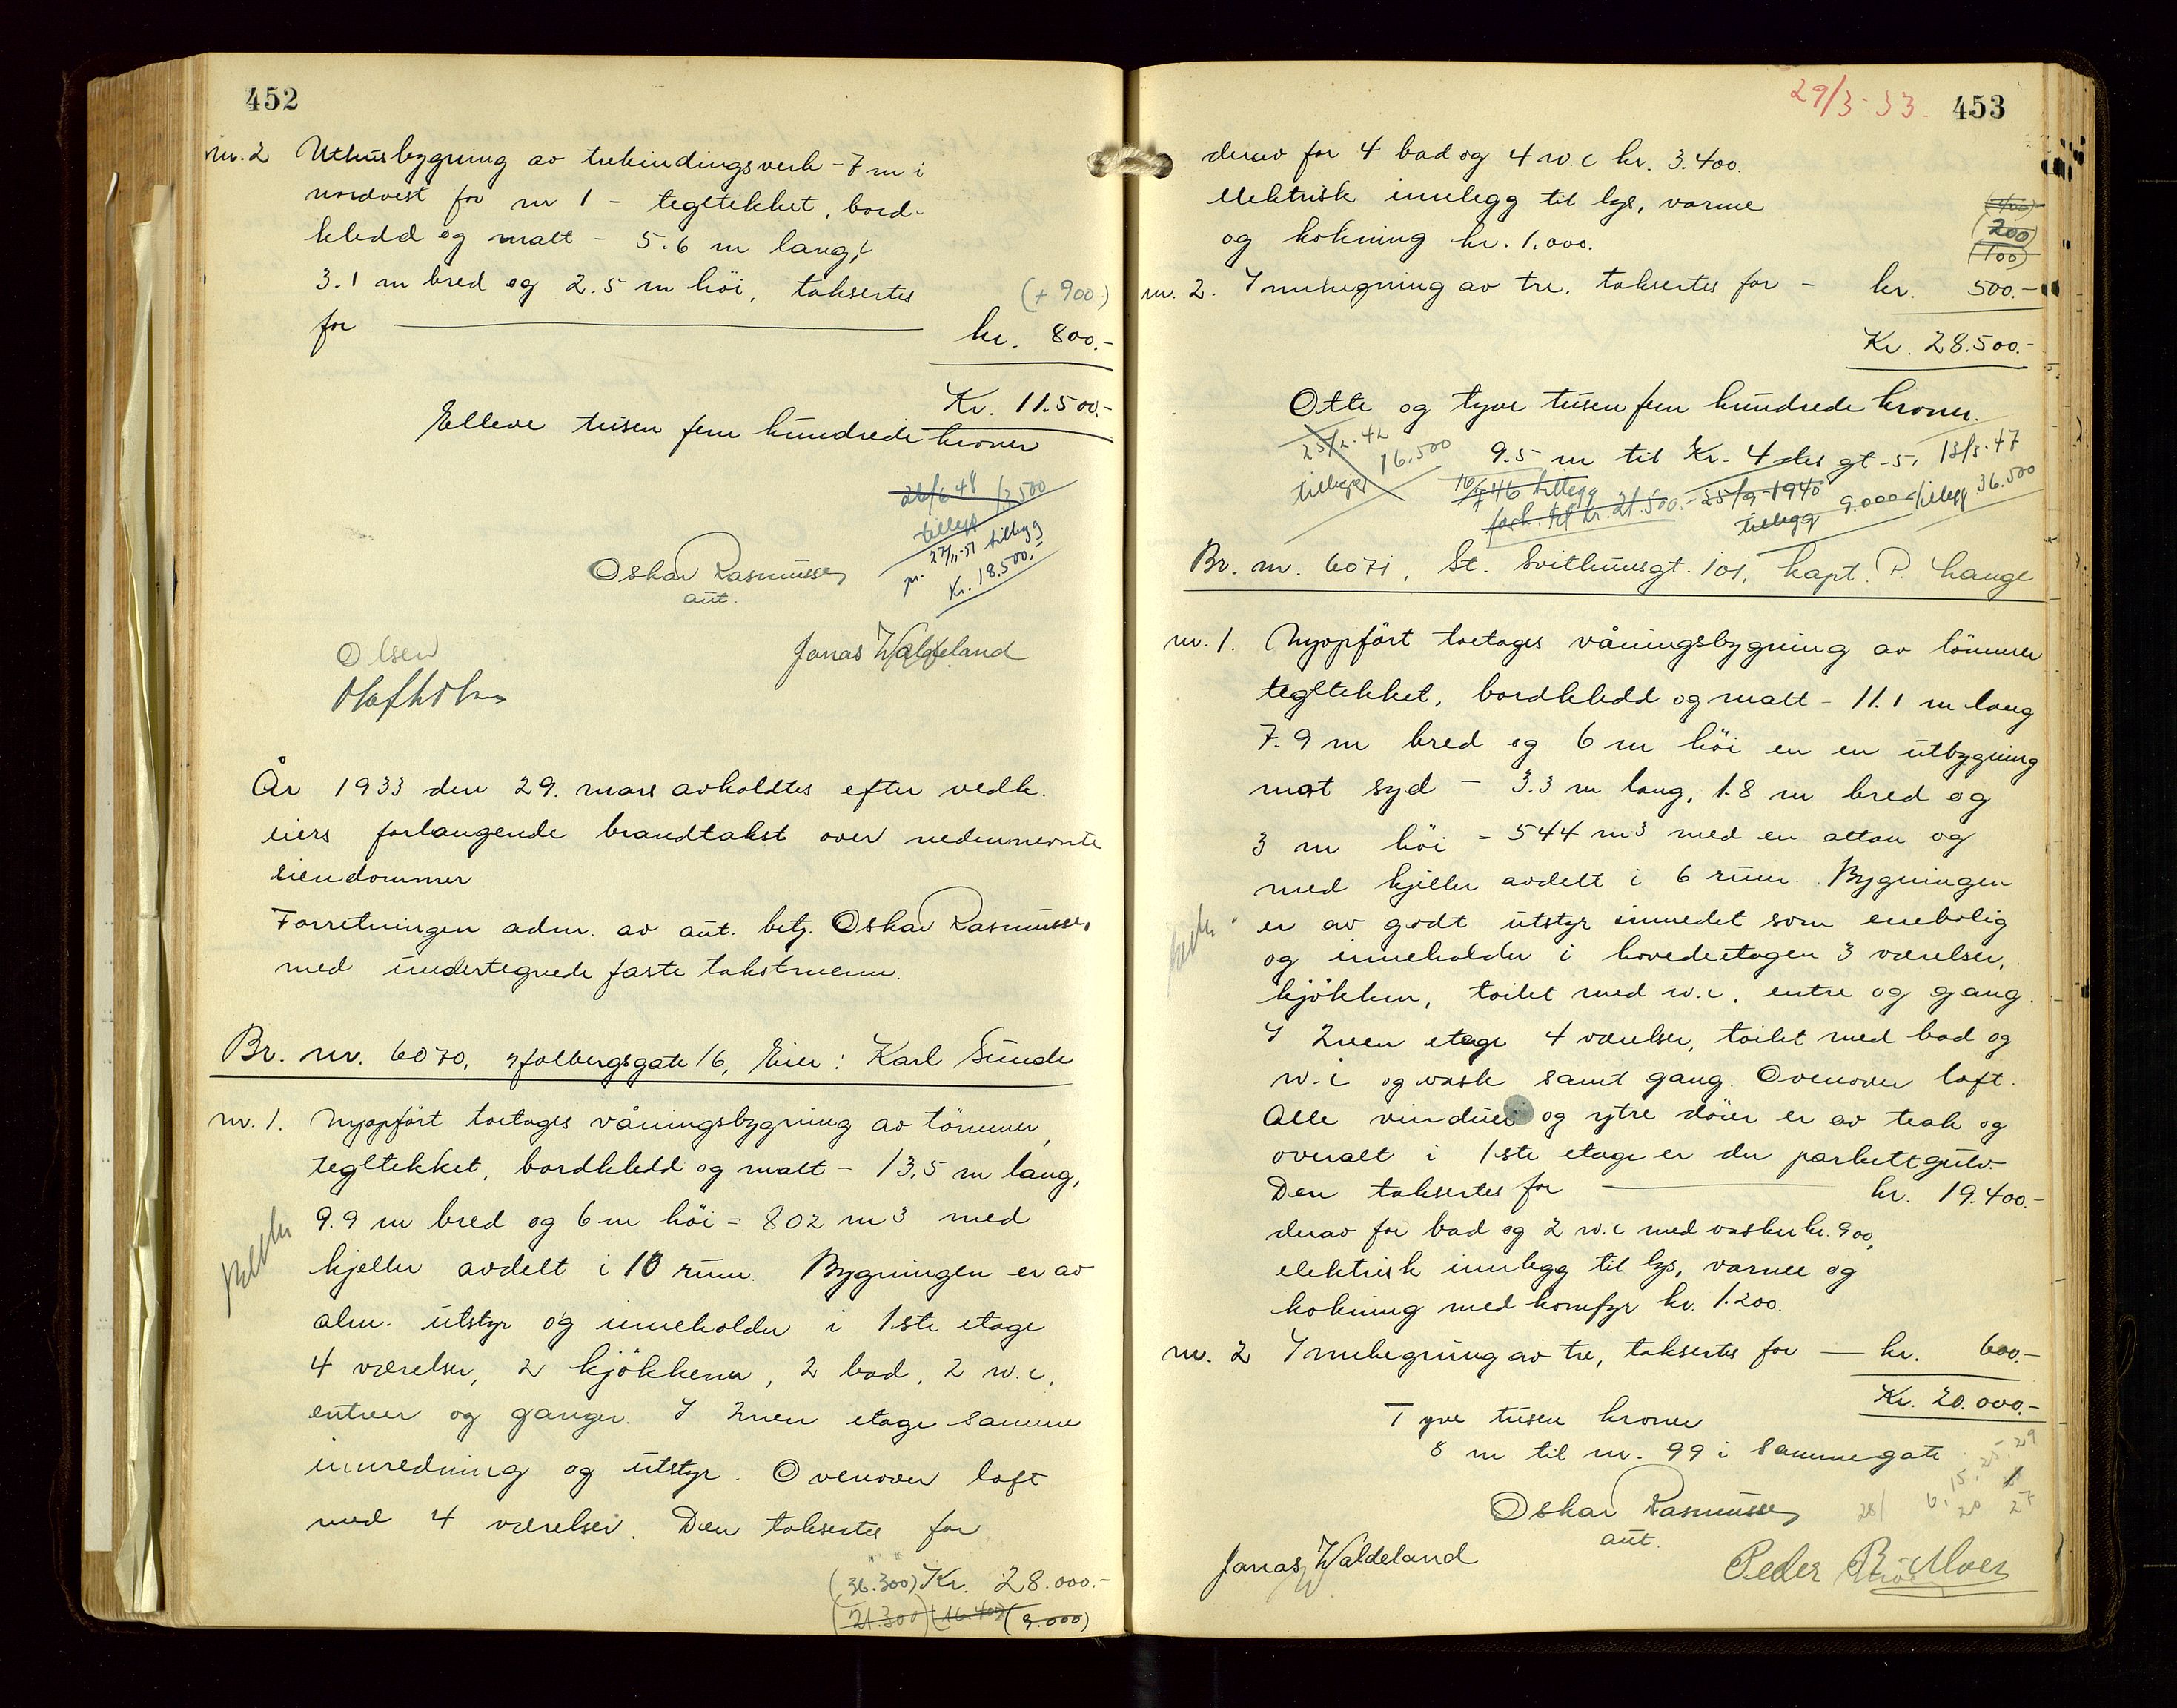 452
nr. 2 Uthusbygning av trebindingsverk - 7 m i
nordvest for nr 1 - tegltekket, bord-
kledd og malt - 5.6 m lang,
3.1 m bred og 2.5 m høi, taksertes
(+ 900)
for kr. 800.-
Kr. 11.500.-
Elleve tusen fem hundrede kroner
26/6 48 13500
tillegg
pr. 27/11-51 tilbygg
Kr. 18.500.-
Oskar Rasmussen
aut.
Jonas Waldeland
Olsen
År 1933 den 29. mars avholdtes efter vedk.
eiers forlangende brandtakst over nedennevnte
eiendommer
Forretningen adm. av aut. betj. Oskar Rasmussen
med undertegnede faste takstmenn.
Br. nr. 6070, Holbergsgate 16, Eier: Karl Sunde
nr. 1. Nyopført toetages våningsbygning av tømmer,
tegltekket, bordkledd og malt - 13,5 m lang,
9.9 m bred og 6 m høi = 802 m3 med
kjeller avdelt i 10 rum. Bygningen er av
alm. utstyr og inneholder i 1ste etage
4 værelser, 2 kjøkkener, 2 bad, 2 w.c,
entreer og ganger. I 2nen etage samme
innredning og utstyr. Ovenover loft
med 4 værelser. Den taksertes for
(36.300) Kr. 28.000.-
(21.300) (16.400) (9.000)
29/3-33. 453
derav for 4 bad og 4 w.c kr. 3.400.
elektrisk innlegg til lys, varme
(400)
(200)
og kokning kr. 1.000.
(100)
nr. 2. Innhegning av tre, taksertes for - kr. 500.-
Kr. 28.500.-
Otte og tyve tusen fem hundrede kroner.
25/2.42 16.500
tillegg
9.5 m til Kr. 4 des gt - 5, 13/3.47
10/7 46 tillegg 25/9-1940 tillegg 36.500
forh. til kr. 21.500.- tillegg 9.000
Br. nr. 6071, St. Svithunsgt. 101, Kapt. P. Lange
nr. 1. Nyopført toetages våningsbygning av tømmer
tegltekket, bordkledd og malt - 11.1 m lang
7.9 m bred og 6 m høi en en utbygning
mot syd - 3.3 m lang, 1.8 m bred og
3 m høi = 544 m3 med en altan og
med kjeller avdelt i 6 rum. Bygningen
er av godt utstyr innredet som enebolig
og inneholder i hovedetagen 3 værelser,
kjøkken, toilet med w.c, entre og gang.
I 2nen etage 4 værelser, toilet med bad og
w.c og vask samt gang. Ovenover loft.
Alle vinduer og ytre dører er av teak og
overalt i 1ste etage er der parkettgulv.
Den taksertes for kr. 19.400.-
derav for bad og 2 w.c med vasker kr. 900,
elektrisk innlegg til lys, varme og
kokning med komfyr kr. 1.200.
nr. 2 Innhegning av tre, taksertes for - kr. 600.-
Kr. 20.000.-
Tyve tusen kroner
8 m til nr. 99 i samme gate
Oskar Rasmussen
aut.
Jonas Waldeland
Peder Moer